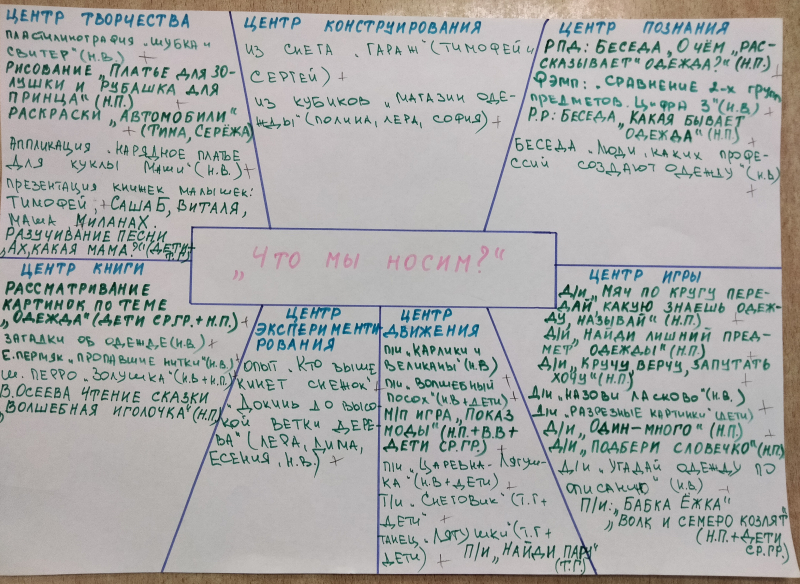 ЦЕНТР ТВОРЧЕСТВА
ПЛАСТИЛИНОГРАФИЯ „ШУБКА И
СВИТЕР" (Н.В.) +
РИСОВАНИЕ „ПЛАТЬЕ ДЛЯ ЗО-
ЛУШКИ И РУБАШКА ДЛЯ
ПРИНЦА" (Н.П.) +
РАСКРАСКИ „АВТОМОБИЛИ"
+ (ТИМА, СЕРЁЖА)
АППЛИКАЦИЯ „НАРЯДНОЕ ПЛАТЬЕ
ДЛЯ КУКЛЫ МАШИ" (Н.В.) +
ПРЕЗЕНТАЦИЯ КНИЖЕК МАЛЫШЕК:
ТИМОФЕЙ, + САША Б, ВИТАЛЯ,
МАША, МИЛАНА Х.
РАЗУЧИВАНИЕ ПЕСНИ
„АХ, КАКАЯ МАМА?" (ДЕТИ +
Т.Г.)
ЦЕНТР КОНСТРУИРОВАНИЯ
ИЗ СНЕГА „ГАРАЖ" (ТИМОФЕЙ И
СЕРГЕЙ) +
ИЗ КУБИКОВ „МАГАЗИН ОДЕ-
ЖДЫ" (ПОЛИНА, ЛЕРА, СОФИЯ) +
ЦЕНТР ПОЗНАНИЯ
РПД: БЕСЕДА „О ЧЁМ „РАС-
СКАЗЫВАЕТ" ОДЕЖДА?" (Н.П.) +
ФЭМП: „СРАВНЕНИЕ 2-Х ГРУПП
ПРЕДМЕТОВ. ЦИФРА 3" (Н.В.) +
Р.Р: БЕСЕДА „КАКАЯ БЫВАЕТ
ОДЕЖДА" (Н.П.) +
БЕСЕДА „ЛЮДИ КАКИХ ПРОФЕ-
ССИЙ СОЗДАЮТ ОДЕЖДУ" (Н.В.)
+
„ЧТО МЫ НОСИМ?"
ЦЕНТР КНИГИ
РАССМАТРИВАНИЕ
КАРТИНОК ПО ТЕМЕ
„ОДЕЖДА" (ДЕТИ СР.ГР. + Н.П.) +
ЗАГАДКИ ОБ ОДЕЖДЕ (Н.В.) +
Е. ПЕРМЯК „ПРОПАВШИЕ НИТКИ" (Н.В.) +
Ш. ПЕРРО „ЗОЛУШКА" (Н.В. + Н.П.) +
В. ОСЕЕВА ЧТЕНИЕ СКАЗКИ
„ВОЛШЕБНАЯ ИГОЛОЧКА" (Н.П.)
ЦЕНТР
ЭКСПЕРИМЕНТИ-
РОВАНИЯ
ОПЫТ „КТО ВЫШЕ
КИНЕТ СНЕЖОК"
„ДОКИНЬ ДО ВЫСО-
КОЙ ВЕТКИ ДЕРЕ-
ВА" (ЛЕРА, ДИМА,
ЕСЕНИЯ, Н.В.) +
ЦЕНТР
ДВИЖЕНИЯ
П/И „КАРЛИКИ И
ВЕЛИКАНЫ" (Н.В.) +
П/И „ВОЛШЕБНЫЙ
ПОСОХ" (Н.В + ДЕТИ) +
М/П ИГРА „ПОКАЗ
МОДЫ" (Н.П. + В.В +
ДЕТИ СР.ГР.) +
П/И „ЦАРЕВНА-ЛЯГУШ-
КА" (Н.В + ДЕТИ) +
Т/И „СНЕГОВИК" (Т.Г +
ДЕТИ" +
ТАНЕЦ „ЛЯГУШКИ" (Т.Г +
ДЕТИ) + П/И „НАЙДИ ПАРУ"
(Т.Г.)
ЦЕНТР ИГРЫ
Д/И „МЯЧ ПО КРУГУ ПЕРЕ-
ДАЙ, КАКУЮ ЗНАЕШЬ ОДЕЖ-
ДУ, НАЗЫВАЙ" (Н.П.) +
Д/И „НАЙДИ ЛИШНИЙ ПРЕД-
МЕТ ОДЕЖДЫ" (Н.П.) +
Д/И „КРУЧУ, ВЕРЧУ, ЗАПУТАТЬ
ХОЧУ" (Н.П.) +
Д/И „НАЗОВИ ЛАСКОВО" (Н.В.) +
Д/И „РАЗРЕЗНЫЕ КАРТИНКИ" (ДЕТИ) +
Д/И „ОДИН-МНОГО" (Н.П.) +
Д/И „ПОДБЕРИ СЛОВЕЧКО" (Н.П.)
Д/И „УГАДАЙ ОДЕЖДУ ПО
ОПИСАНИЮ" (Н.В.) +
П/И: „БАБКА ЁЖКА"
„ВОЛК И СЕМЕРО КОЗЛЯТ"
(Н.П. + ДЕТИ
СР.ГР.)